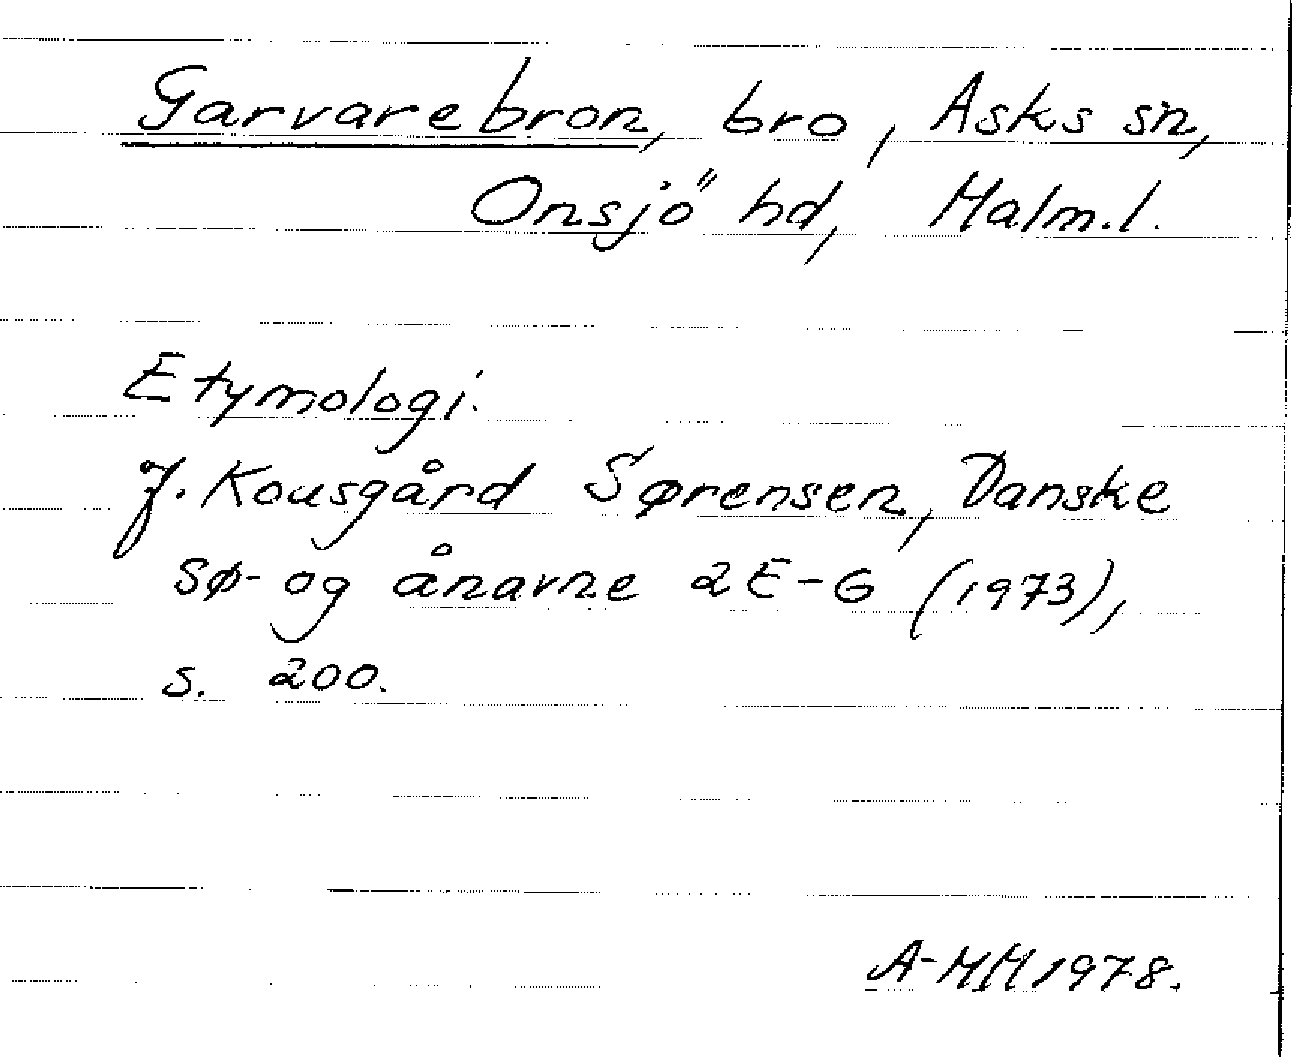 Garvarebron, bro, Asks sn,
Onsjö hd, Malm.l.
Etymologi.
J. Kousgård Sørensen, Danske
sø- og ånavne 2 E-G (1973),
s. 200.
A-MM 1978.